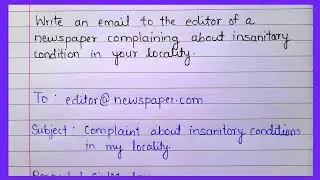 Write an email to the editor of a
newspaper complaining about insanitary
condition in your locality.
To : editor@newspaper.com
Subject : Complaint about insanitary conditions
in my locality.